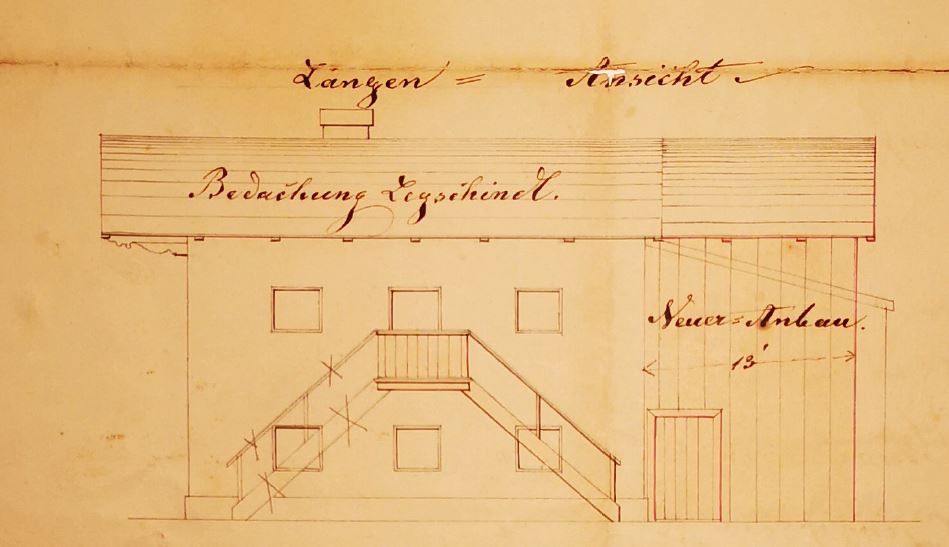 Längen = Ansicht
Bedachung Legschindl.
Neuer=Anbau.
13'